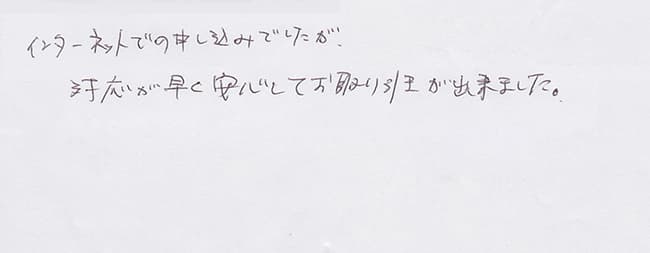 インターネットでの申し込みでしたが、
対応が早く安心してお取り引きが出来ました。